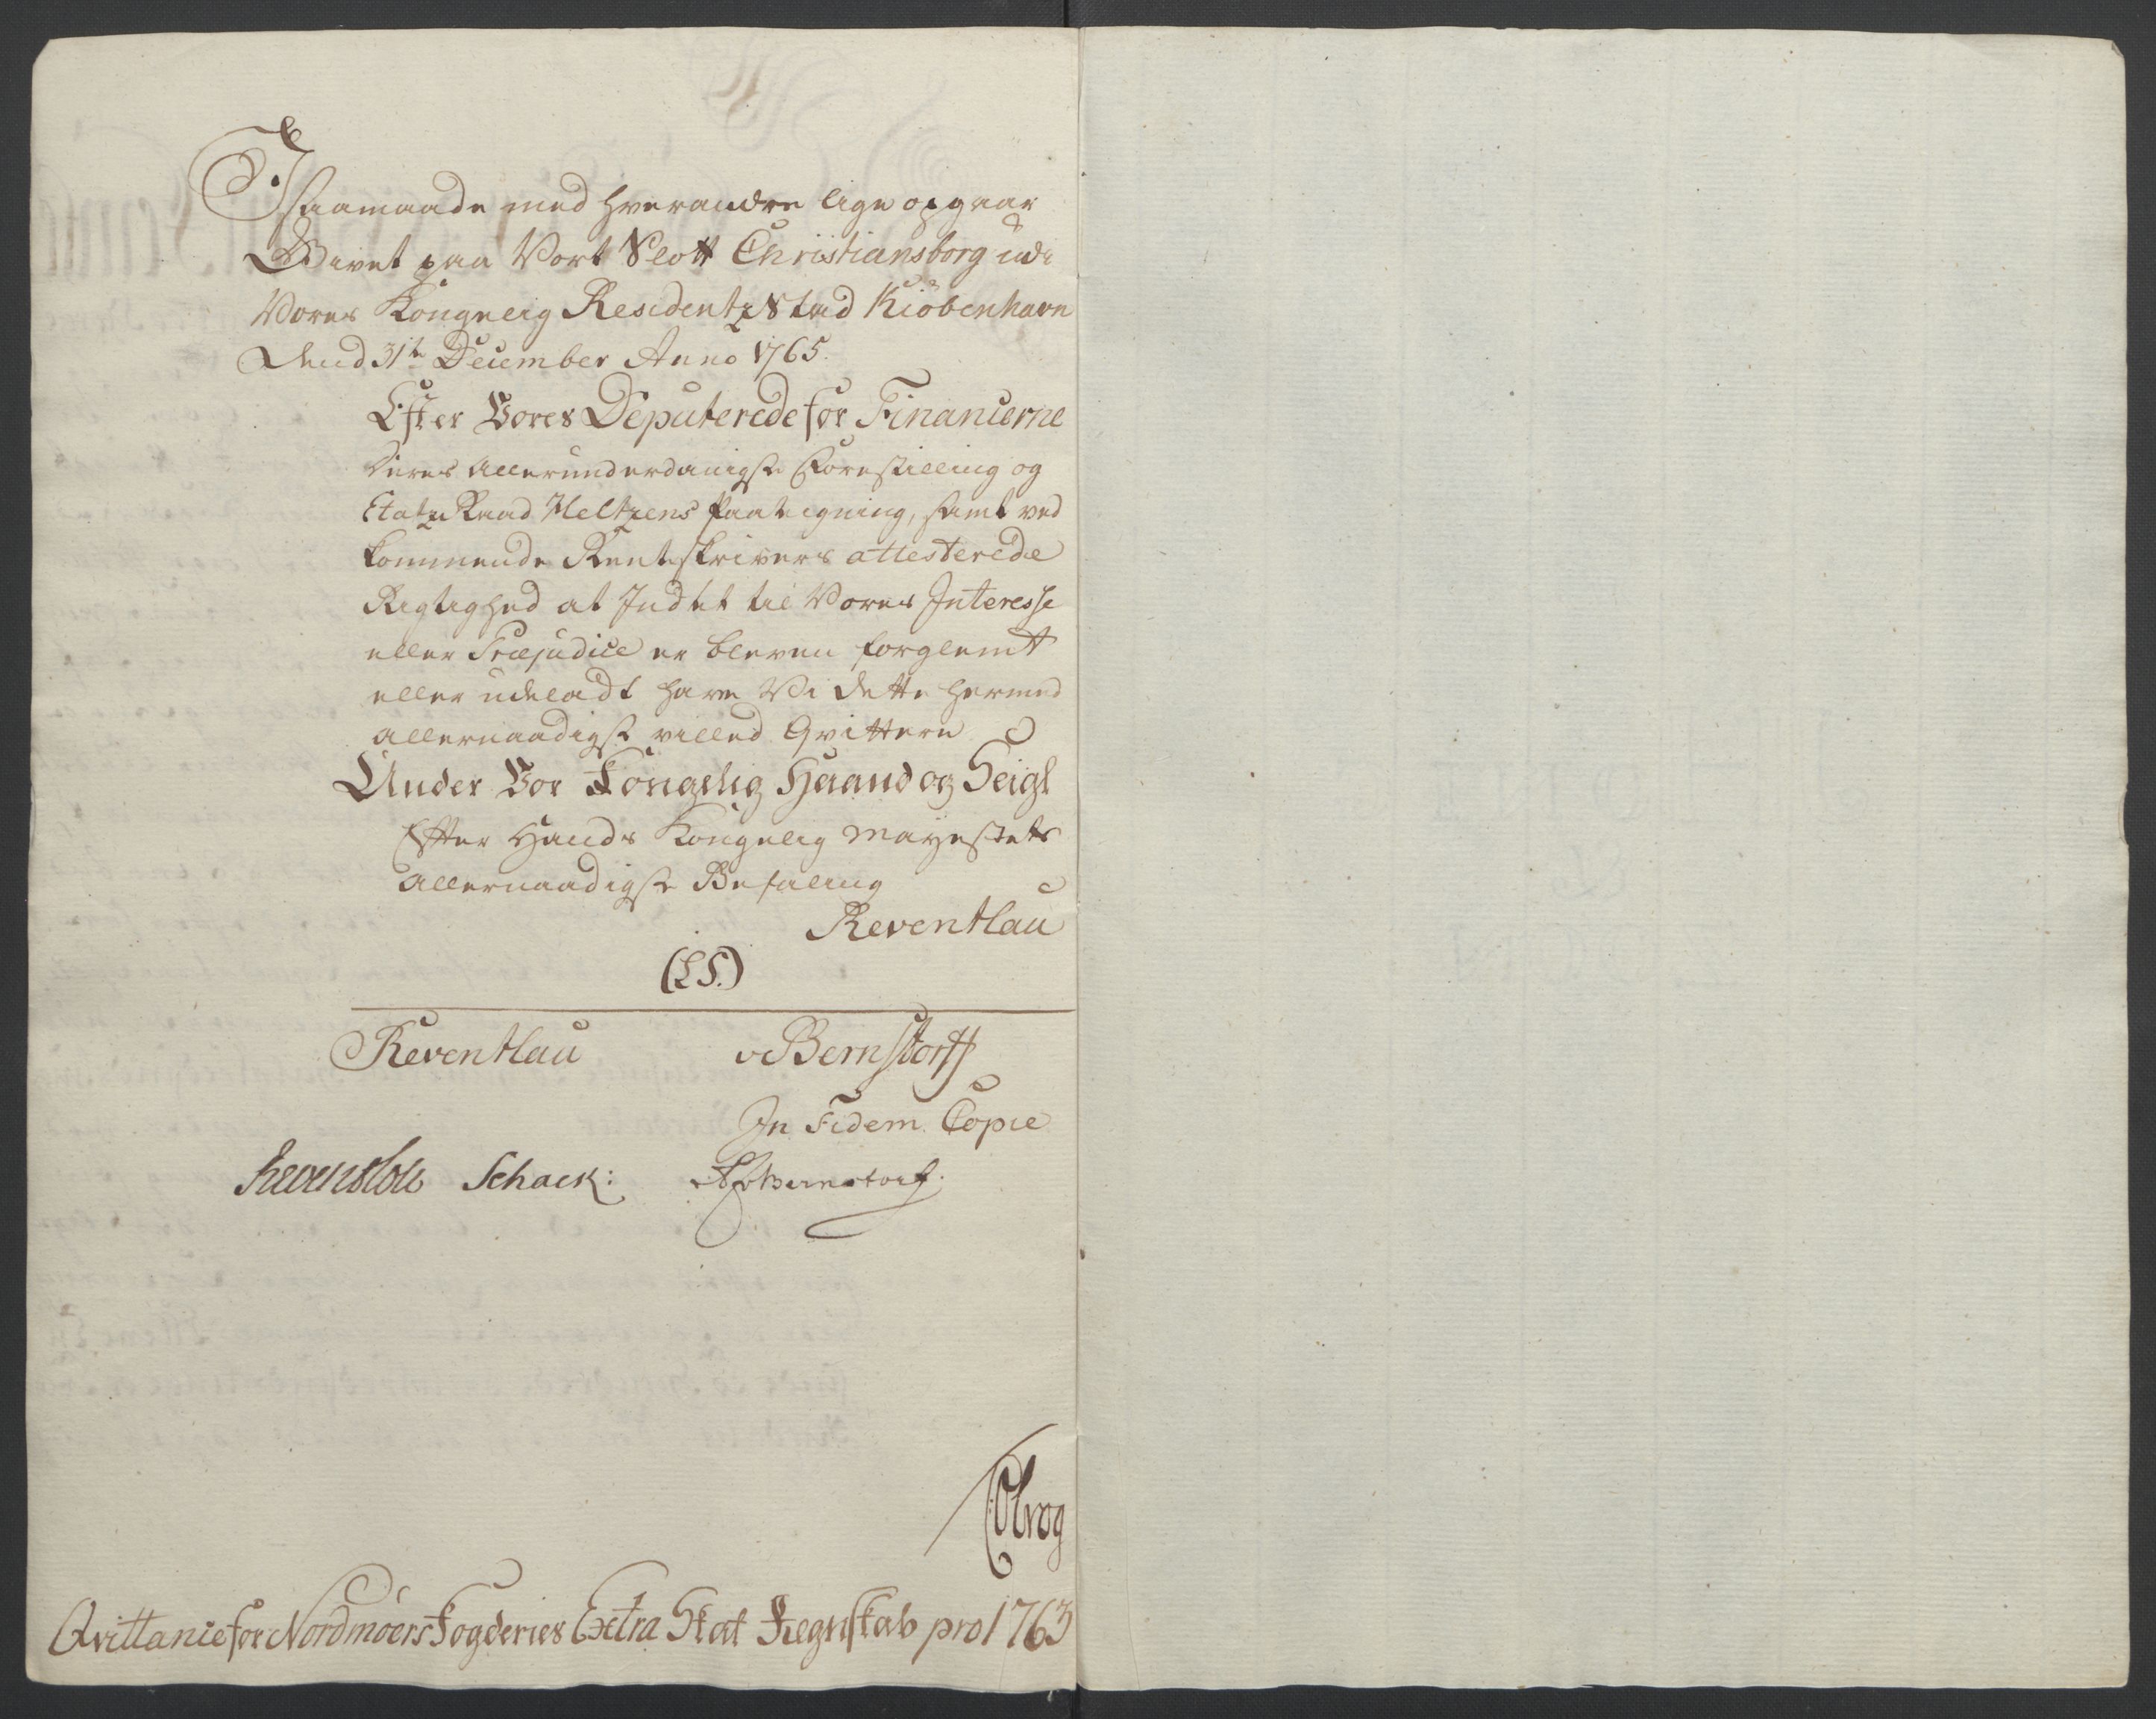 I saamaade med hverandre lige opgaar
Givet paa Vort Slott Christiansborg udi
Vores Kongelig Residentz Stad Kiöbenhavn
Dend 31te December Anno 1765.
Efter Vores Deputerede for Financerne
Deres Allerunderdanigste Forestilling og
Etatz Raad Heltzens Paategning, samt ved
kommende Rentskrivers attesterede
Rigtighed at Indtet til Vores Interesse
eller Præjudice er bleven forglemt
eller udeladt have Vi dette hermed
allernaadigst villed Qvittere
Under Vor Kongelig Haand og Seigl
Efter Hands Kongelig Mayestets
Allernaadigste Befaling
Reventlau
(L S.)
Reventlau v Bernstorff
In Fidem Copie
Reventlou Schack: A P v Bernstorf.
Qvittance for Nordmöers Fogderies Extra Skat Regnskab pro 1763